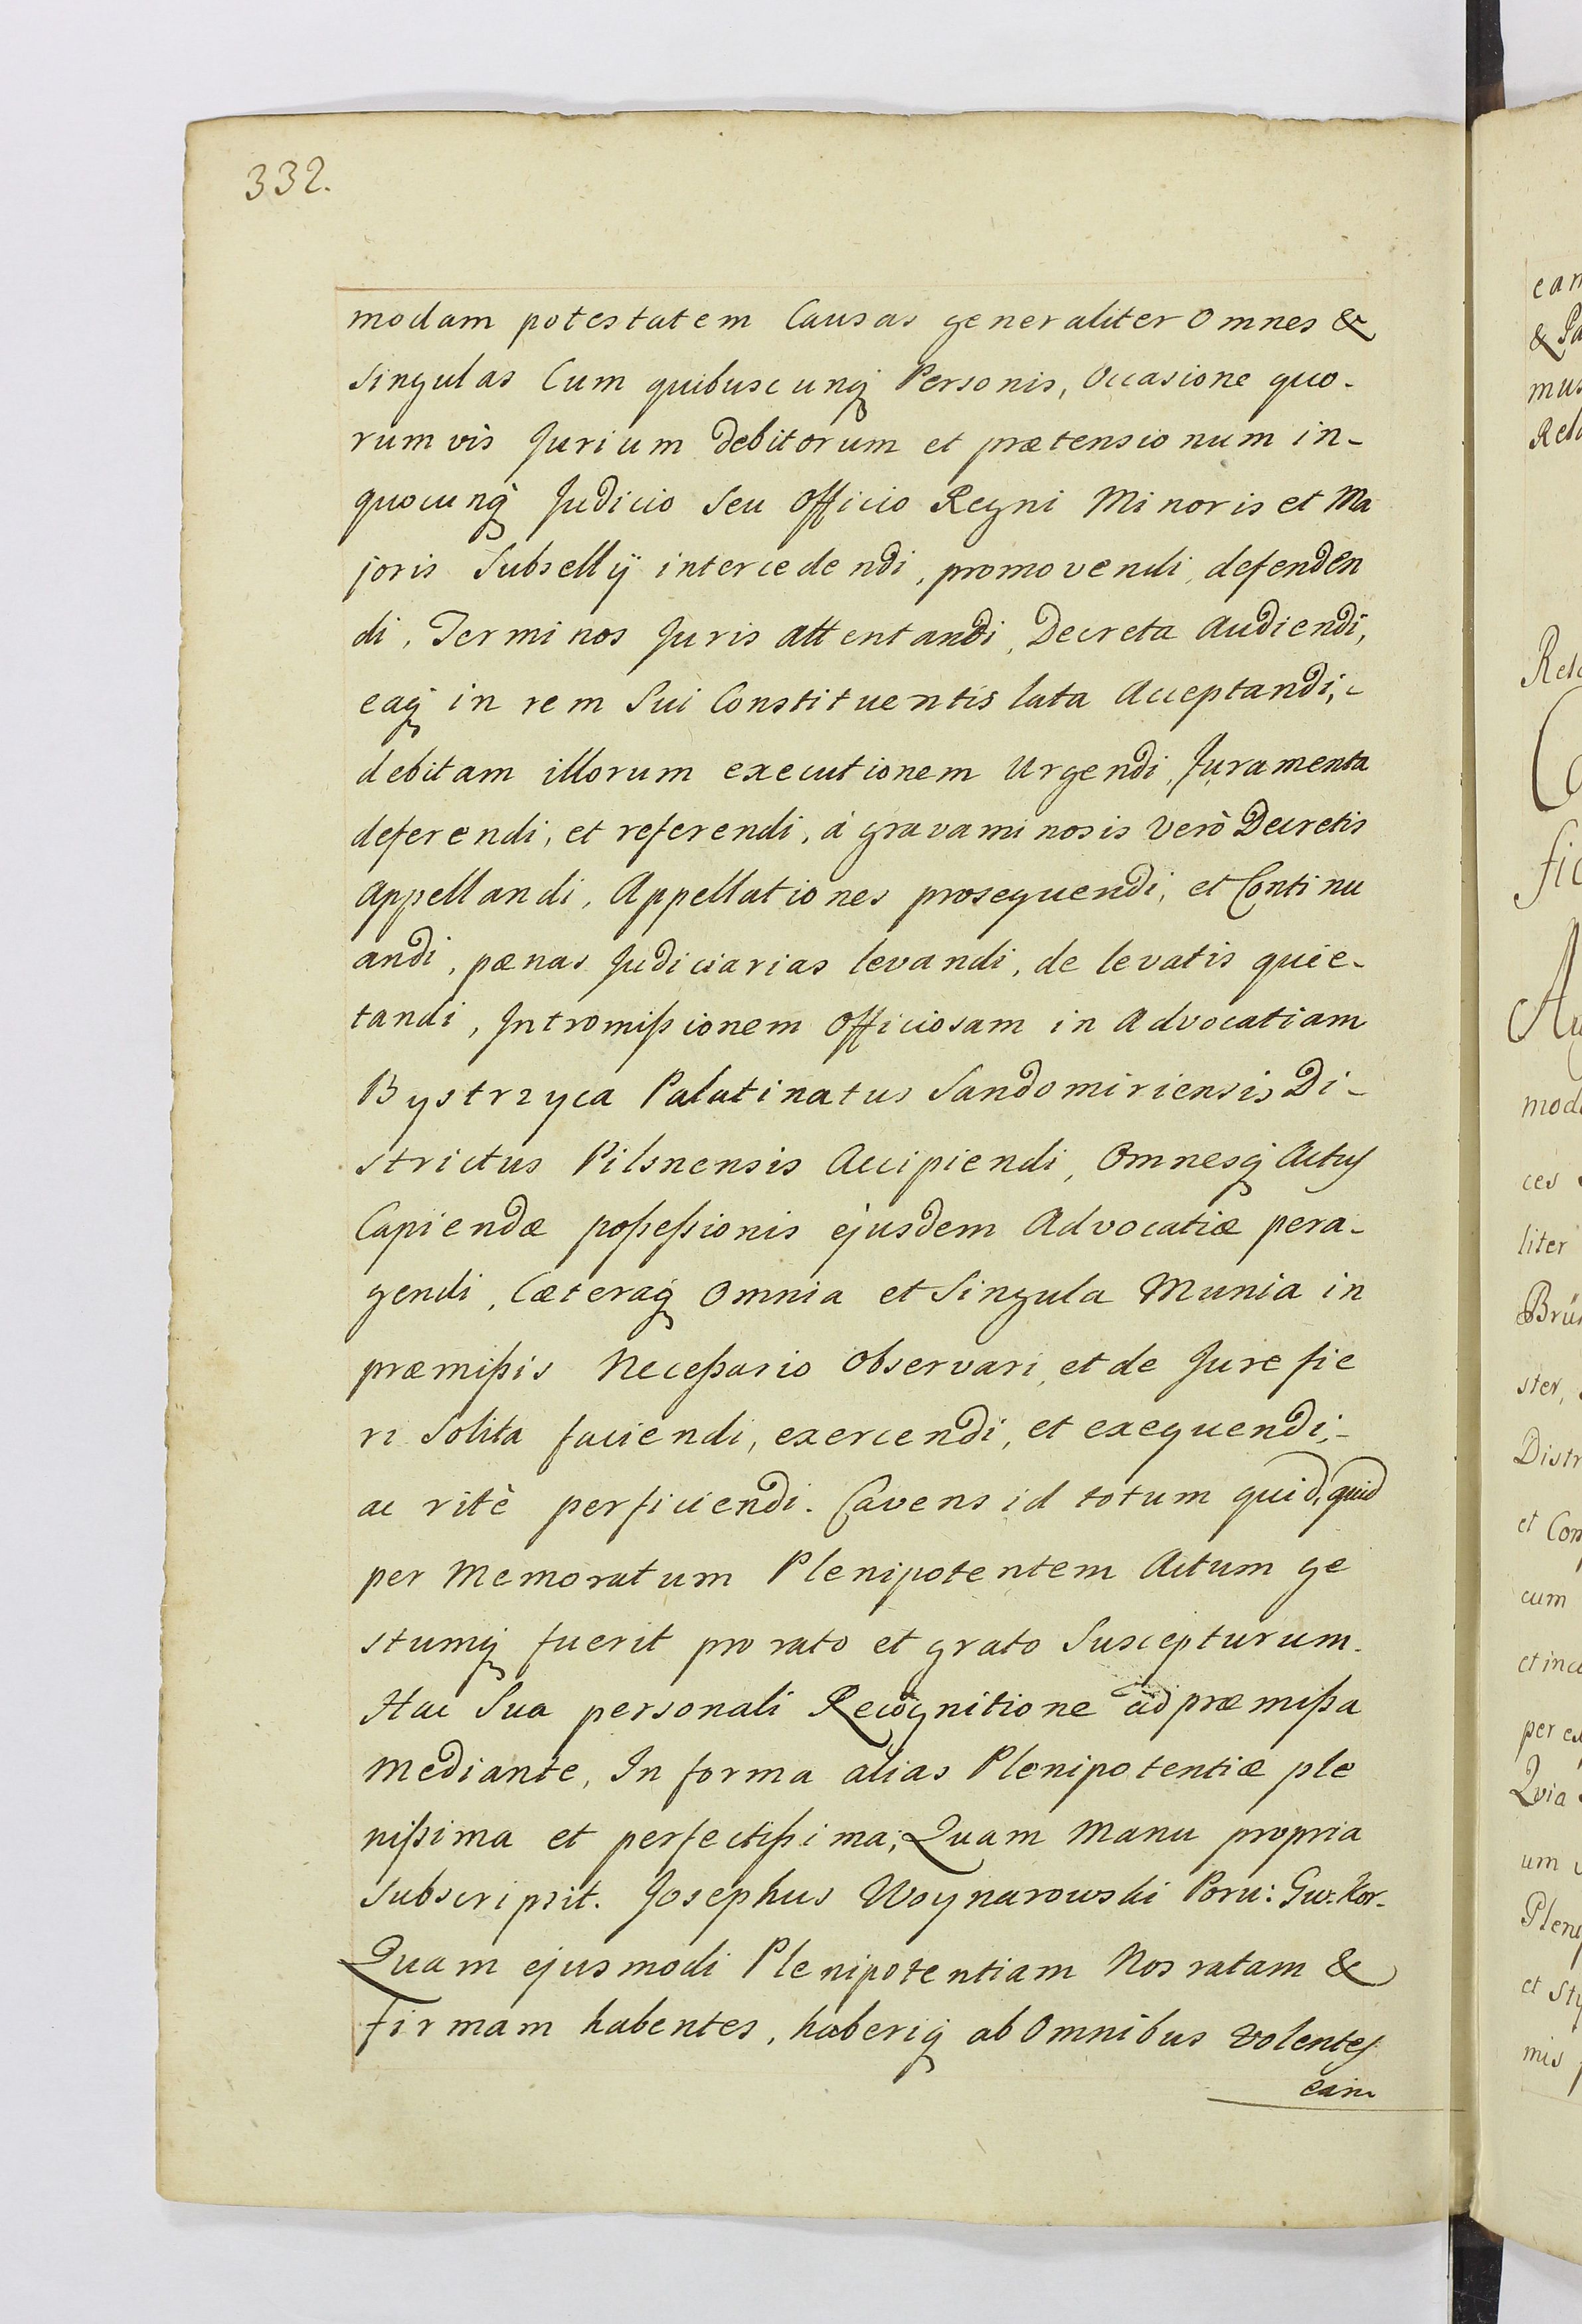 332.
modam potestatem Causas generaliter Omnes &
Singulas Cum quibuscunq Personis, Occasione quo-
rumvis Jurium Debitorum et prætensionum in-
quocunq Judicio Seu Officio Regni Minoris et Ma
joris Subsellÿ intercedendi, promovendi, defenden
di, Terminos Juris attentandi, Decreta audiendi,
eaq in rem Sui Constituentis lata Acceptandi,
debitam illorum executionem Urgendi, Juramenta
deferendi, et referendi, à gravaminosis Verò Decretis
Appellandi, Appellationes prosequendi, et Continu
andi, pænas Judiciarias levandi, de levatis quie-
tandi, Intromißionem Officiosam in Advocatiam
Bystrzyca Palatinatus Sandomiriensis Di-
strictus Pilsnensis Accipiendi, Omnesq Actus
Capiendæ poßeßionis ejusdem Advocatiæ pera-
gendi, Cæteraq Omnia et Singula Munia in
præmißis Neceßario Observari, et de Jure fie
ri Solita faciendi, exercendi, et exequendi,-
ac ritè perficiendi. Cavens id totum quid, quid
per Memoratum Plenipotentem Actum ge
stumq fuerit pro rato et grato Suscepturum.
Hac Sua personali Recognitione ad præmißa
Mediante, In forma alias Plenipotentiæ ple
nißima et perfectißima; Quam Manu propria
Subscripsit. Josephus Woynarowski Poru: Gw: Kor-
Quam ejusmodi Plenipotentiam Nos ratam &
firmam habentes, haberiq ab Omnibus volentes
eam
ean
mus
Rela
Rela
fic
mod
ces
liter
Brü
ster,
Distr
et Con
cum
et inc
per
Qvia
um
Pleni
et
mis